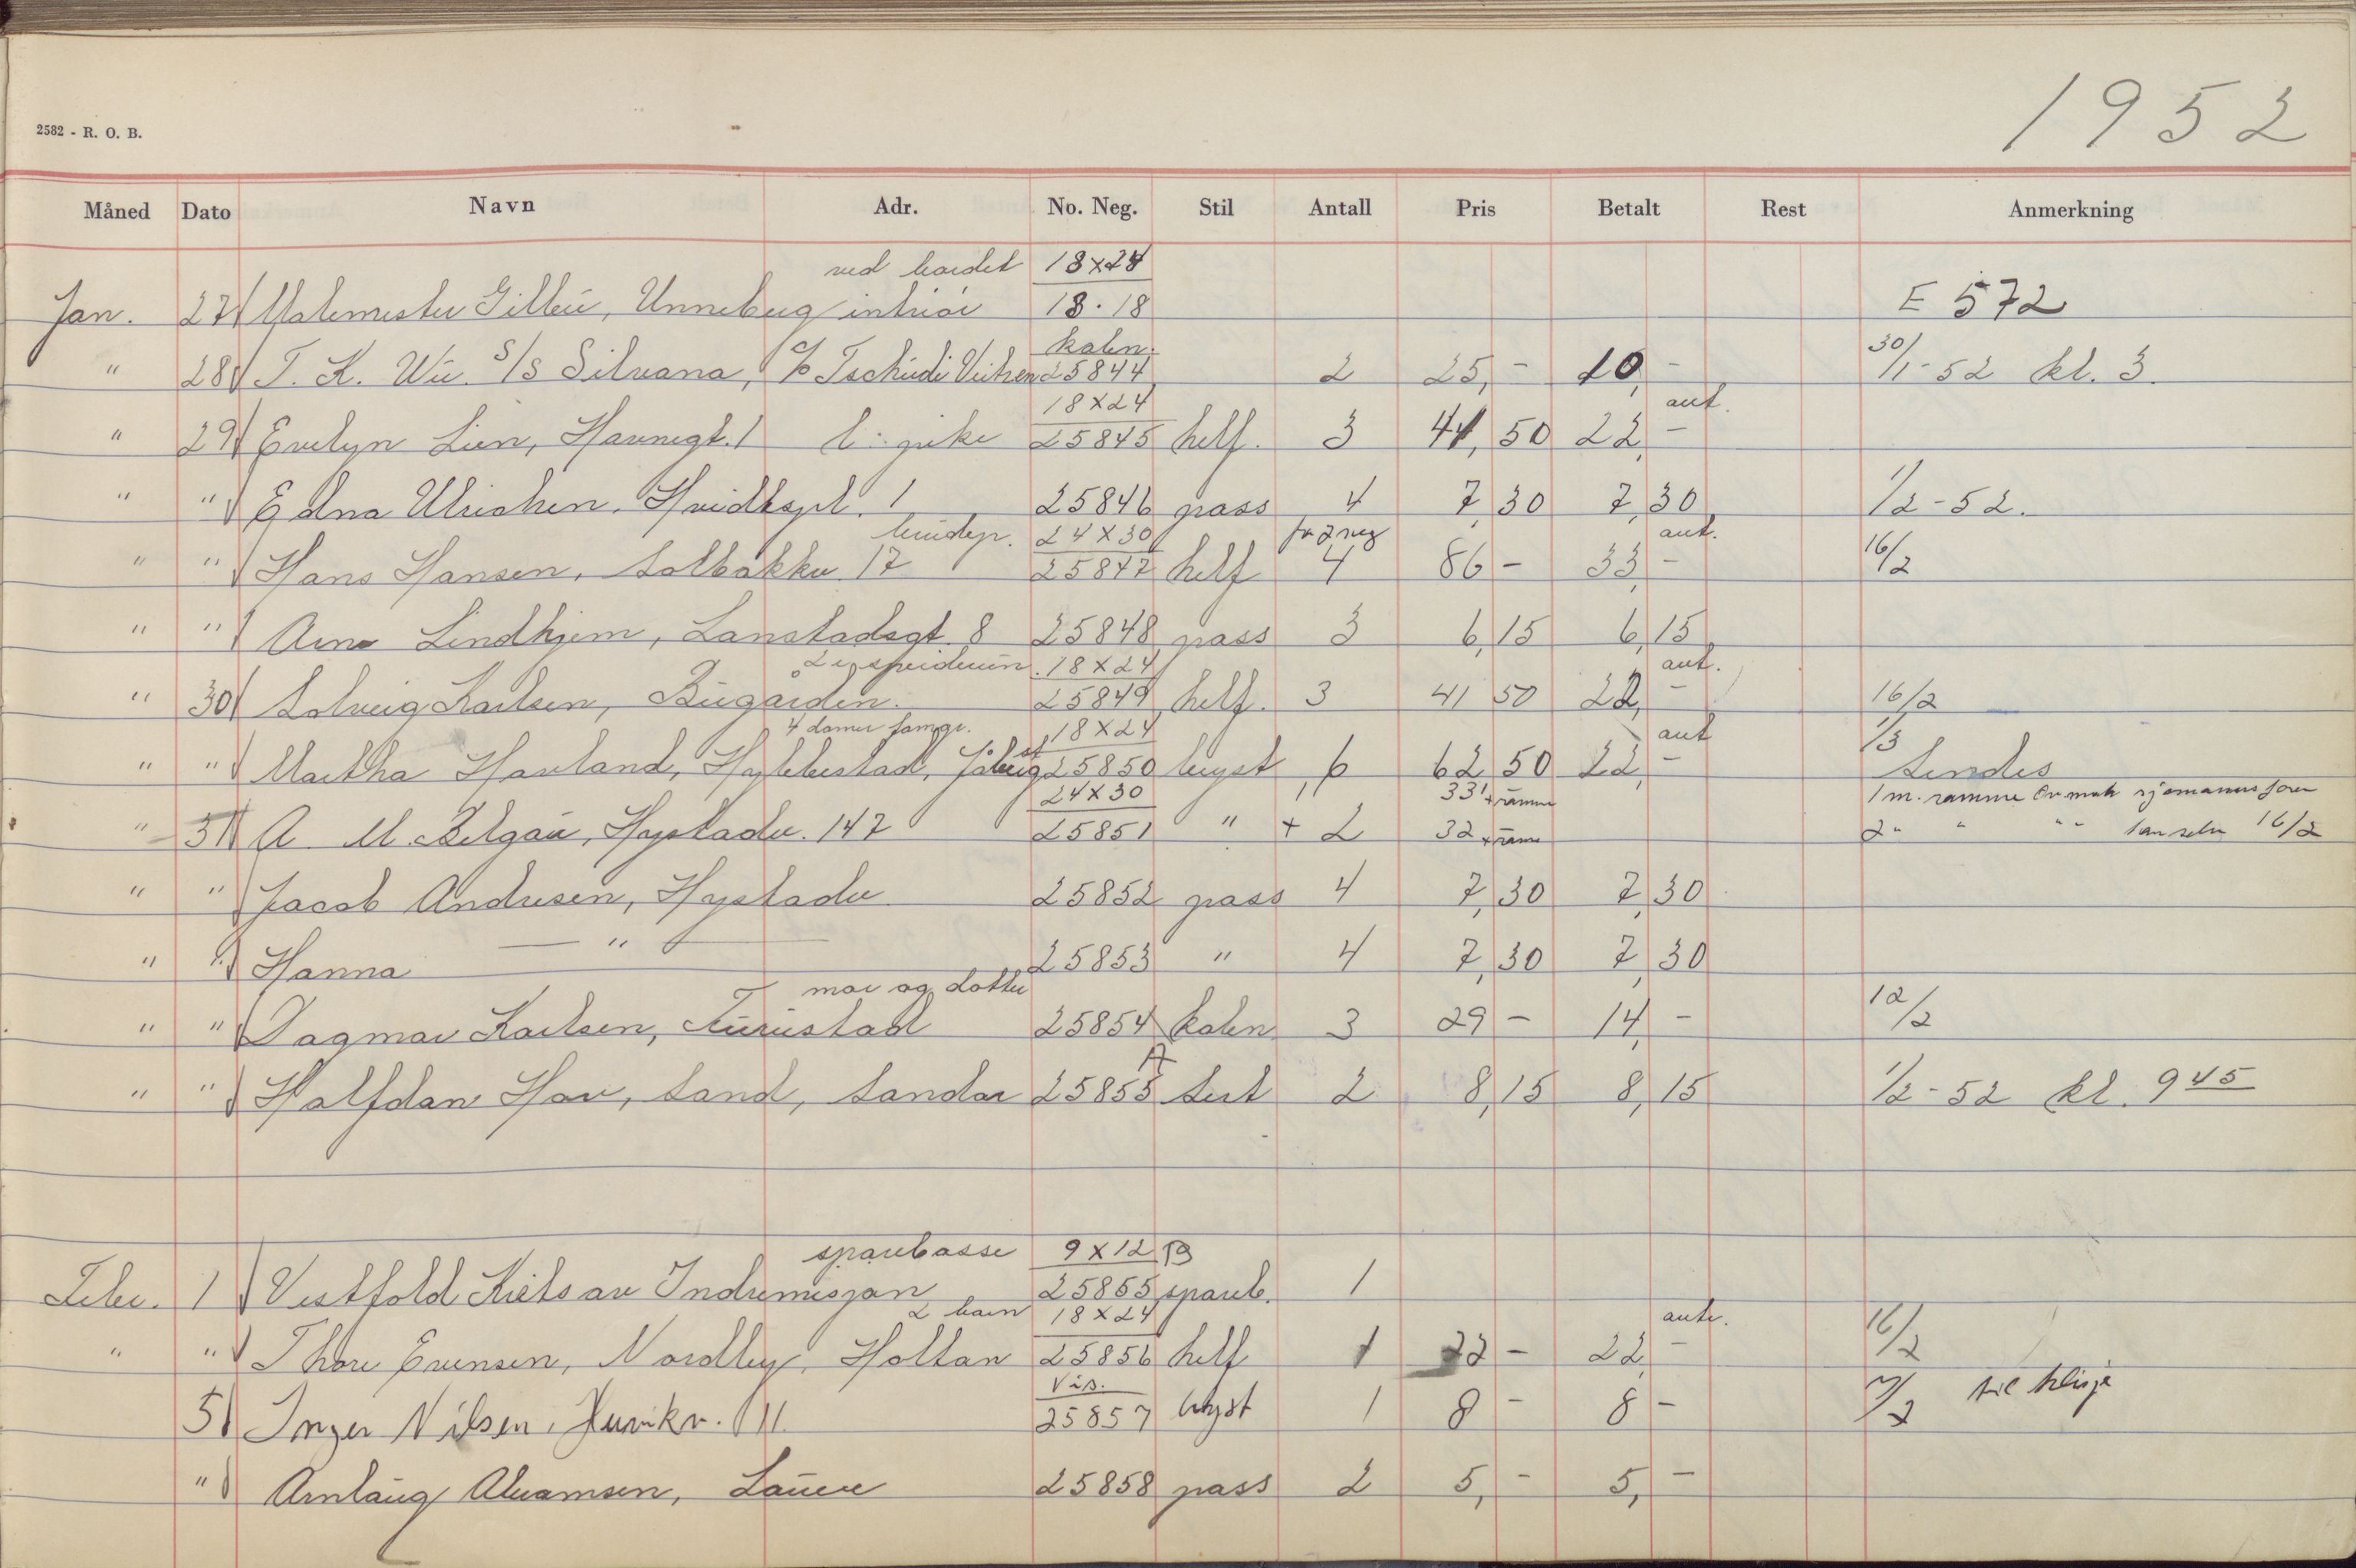 1952
2582 - R. O. B.
Måned Dato Navn Adr. No. Neg. Stil Antall Pris Betalt Rest Anmerkning
ved bordet 18x24
Jan. 27 Malemester Unneberg interiør 18.18 E 572
kaben.
" 28 T. K. Wii. S/S Silvana, c/o Tschudi 25844 2 25,- 10,- 30/1-52 kl. 3.
18x24 ant.
" 29 Evelyn Lien, Havnegt. 1 25845 helf. 3 41,50 22,-
" " Edna Ulrichen. Hvidtspl. 1 25846 pass 4 7,30 7,30 1/2-52.
brudep. 24x30 fr 2 neg ant.
" " Hans Hansen, Solbakkv. 17 25847 helf 4 86- 33,- 16/2
" " Arne Lindhjem, Lanstadsgt. 8 25848 pass 3 6,15 6,15
18x24 ant.
" 30 Solveig Karlsen, Bugården. 25849 helf. 3 41 50 22,- 16/2
4 damer famgr. 18x24 ant 1/3
" " Martha Havland, Hyllestad, 25850 bryst 6 62 50 22,- Sendes
24x30 33 + ramme 1 m. ramme
" 31 A. M. Hystadv. 147 25851 " + 2 32 + ramme 2 " " " " 16/2
" " Jacob Andresen, Hystadv. 25852 pass 4 7,30 7,30
" " Hanna — " — 25853 " 4 7,30 7,30
mor og dotter
" " Dagmar Karlsen, Furustad 25854 kaben 3 29- 14,- 12/2
A
" " Halfdan Hav, Sand, Sandar 25855 Sert 2 8,15 8,15 1/2-52 kl. 9 45
sparebøsse 9x12 B
Febr. 1 Vestfold Krets av Indremisjon 25855 spareb. 1
2 barn 18x24 ant.
" " Thore Evensen, Nordby, Holtan 25856 helf 1 22- 22,- 16/2
Vis.
5 Inger Nilsen, 11. 25857 bryst 1 8- 8- 7/2 til klisje
" Arnlaug Abramsen, Lauve 25858 pass 2 5,- 5,-